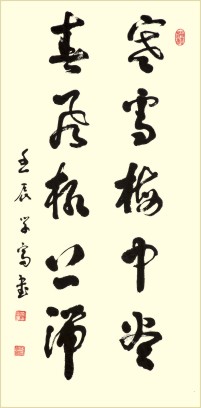 寒雪梅中尽
春风柳上归
壬辰学